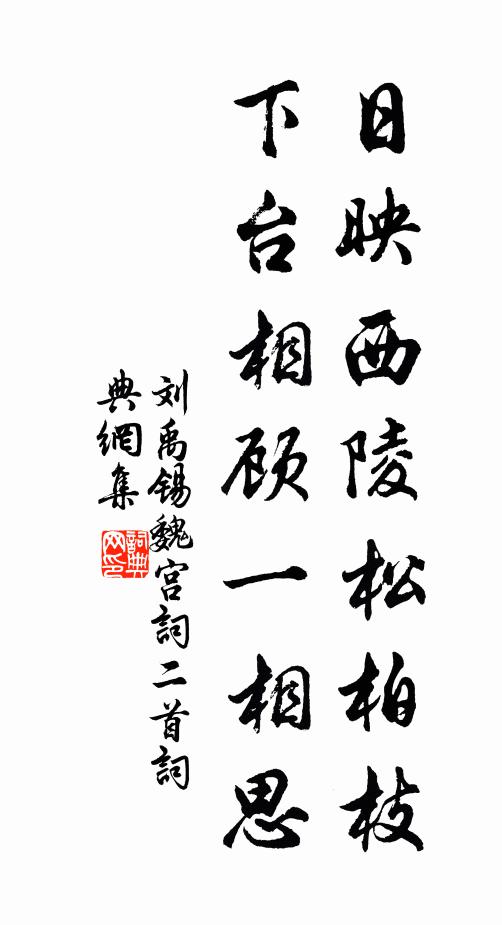 日映西陵松柏枝
下台相顾一相思
刘禹锡魏宫詞二首詞
典網集
詞典
网印